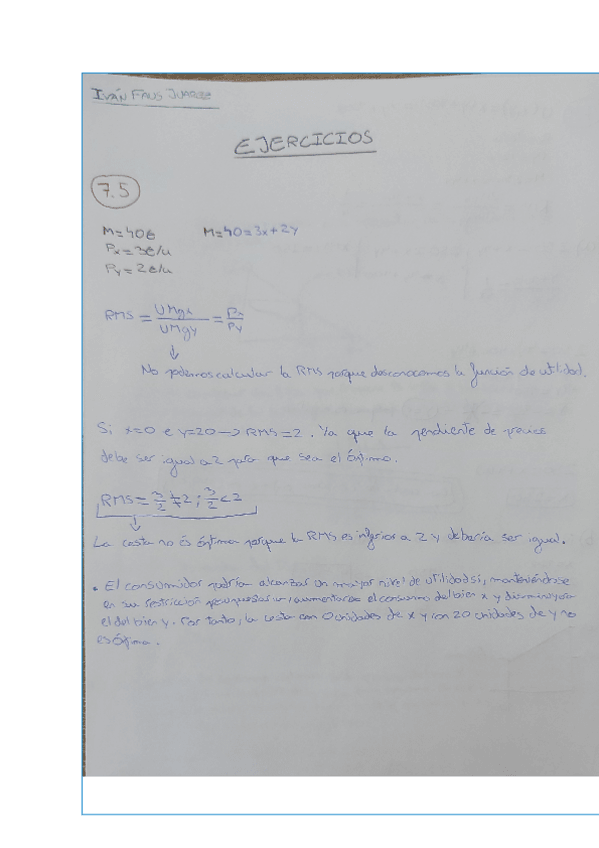 IVÁN FAUS JUAREZ
EJERCICIOS
7.5
M=40€ M=40=3x+2y
Px=3€/u
Py=2€/u
RMS = UMgx/UMgy = Px/Py
No podemos calcular la RMS porque desconocemos la función de utilidad.
Si x=0 e y=20 → RMS=2. Ya que la pendiente de precios
debe ser igual a 2 para que sea el óptimo.
RMS = 3/2 ≠ 2; 3/2 < 2
La cesta no es óptima porque la RMS es inferior a 2 y debería ser igual.
• El consumidor podría alcanzar un mayor nivel de utilidad si, manteniéndose
en su restricción presupuestaria, aumentara el consumo del bien x y disminuyera
el del bien y. Por tanto, la cesta con 0 unidades de x y con 20 unidades de y no
es óptima.